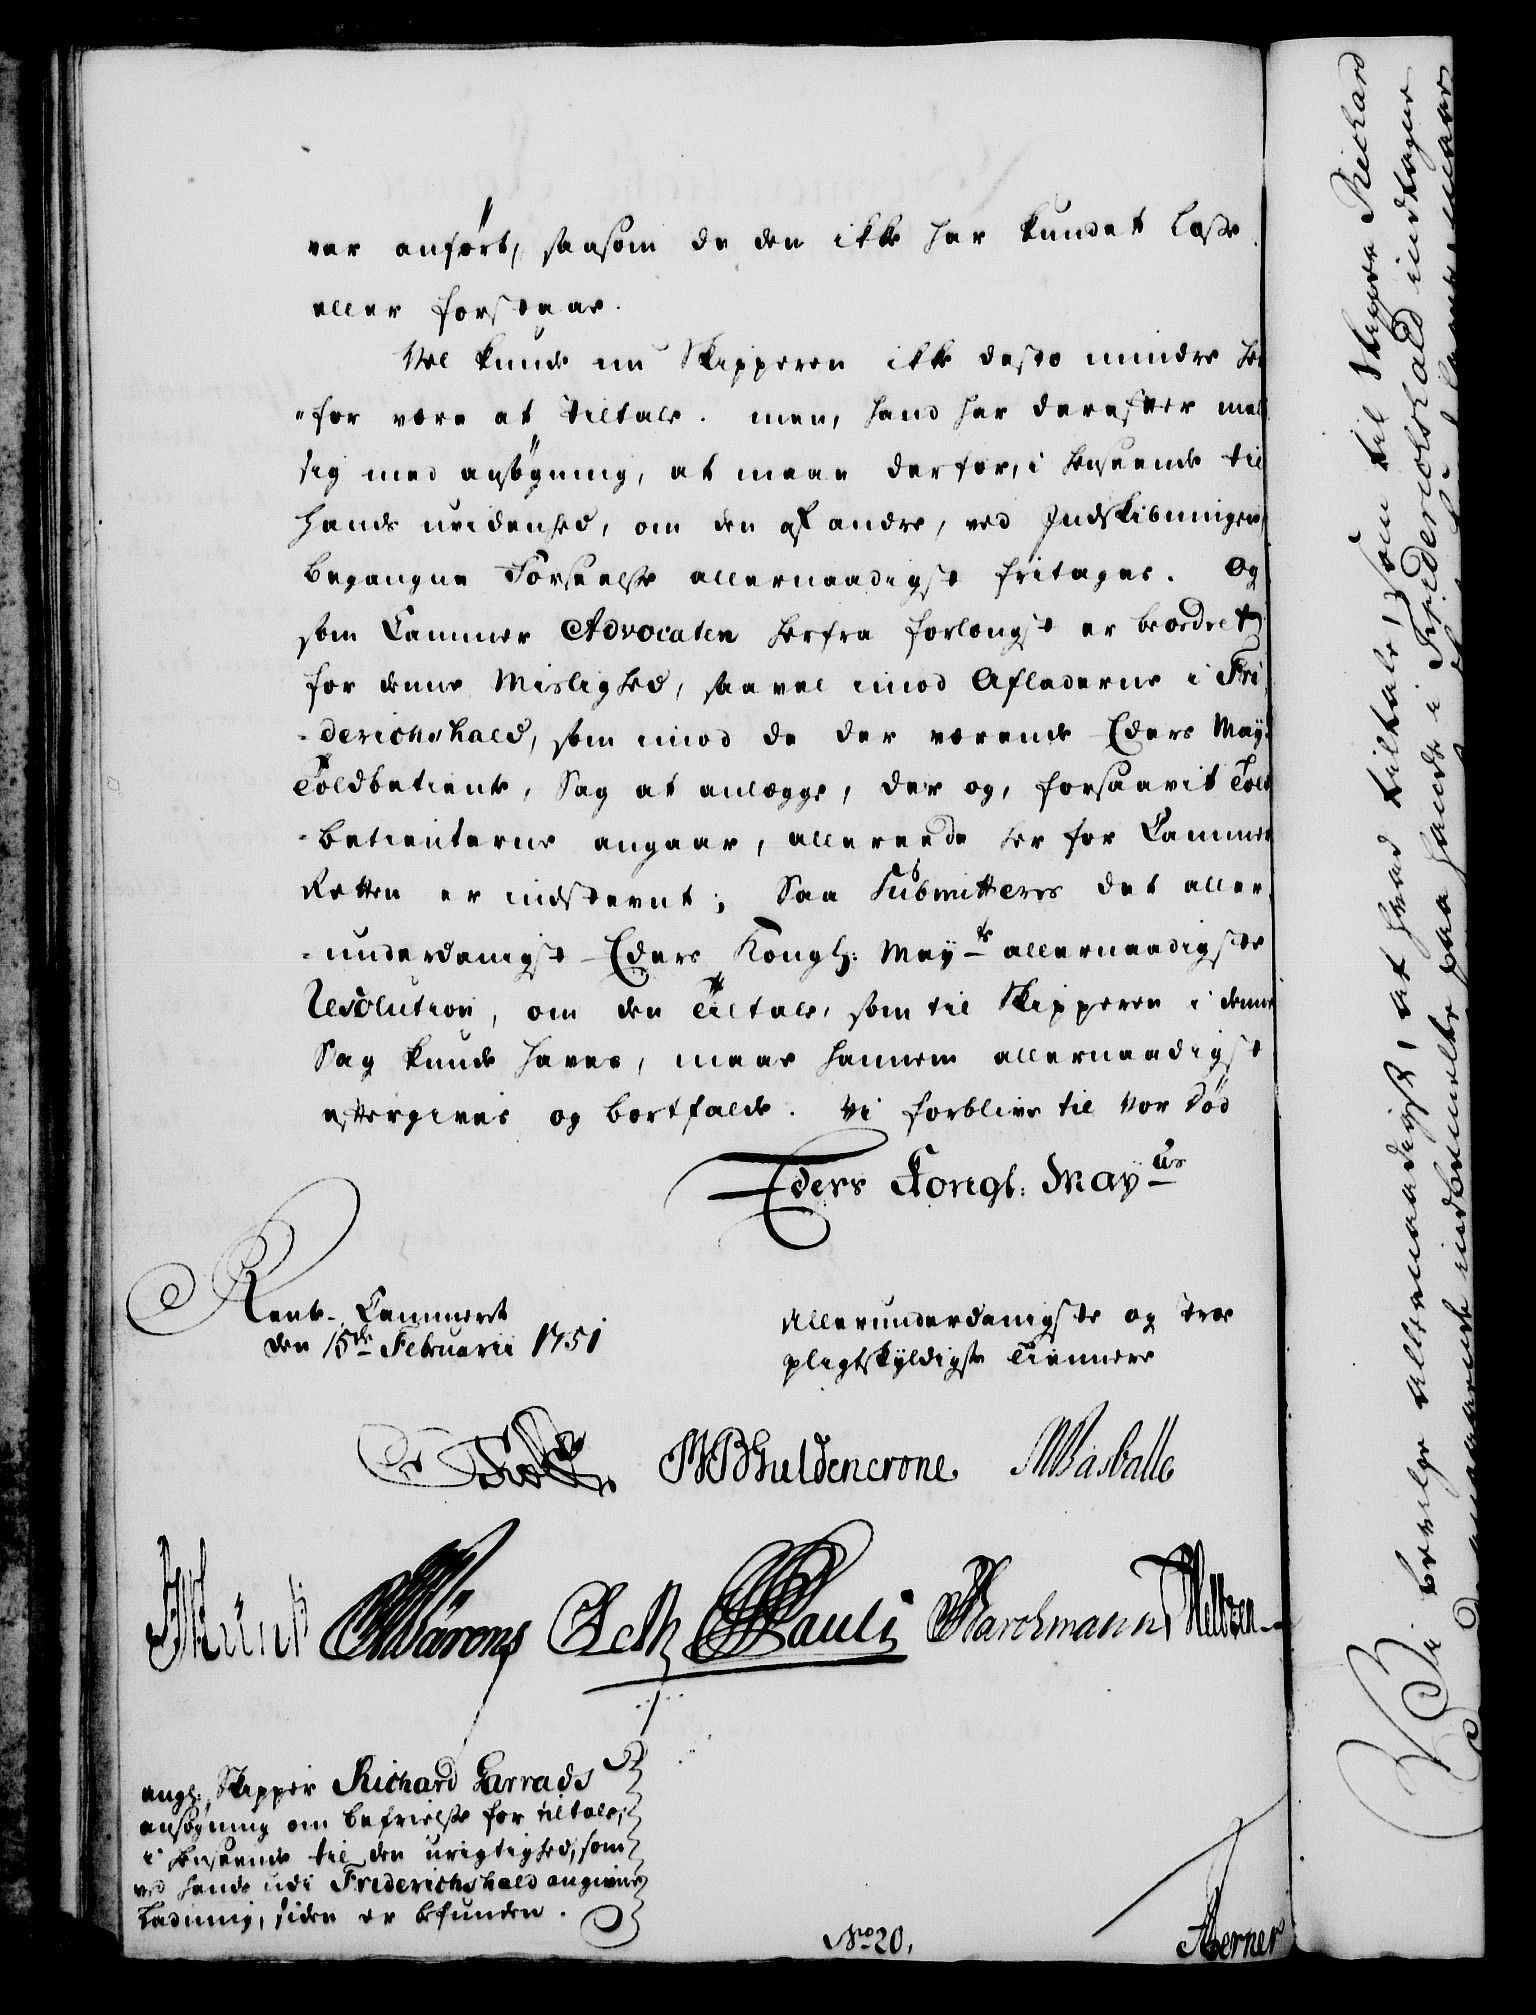 var anført, saasom de den ikke har kundet læse
eller forstaae.
Vel kunde nu Skipperen ikke desto mindre her
-for være at tiltale. men, hand har derefter meldt
sig med ansøgning, at maae derfor, i henseende til
hands uvidenhed, om den af andre, ved Indskibningen
begangne Forseelse allernaadigst fritages. Og
som Cammer Advocaten herfra forlængst er beordret
for denne Mislighed, saavel imod Afladerne i Fri
-derichshald, som imod de der værende Eders Mayts
Toldbetiente, Sag at anlægge, der og, forsaavit Told
-betienterne angaar, allereede her for Cammer
Retten er indstevnt; Saa Submitteres det aller
-underdanigst Eders Kongl: Mayts allernaadigste
Resolution, om den Tiltale, som til Skipperen i denne
Sag kunde haves, maae hannem allernaadigst
eftergives og bortfalde. Vi forblive til vor død
Eders Kongl: Mayts
Rente-Cammeret
den 15de Februarii 1751
Allerunderdanigste og troe
pligtskyldigste Tiennere
Guldencrone Wasballe
Pauli Marchmann
angl: Skipper Richard Garrads
ansøgning om befrielse for tiltale,
i henseende til den urigtighed, som
ved hands udi Friderichshald angivne
Ladning, siden er befunden.
No 20.
Berner
Vi bevilge allernaadigst, at hvad tiltale, som til Skipper Richard
paa hands i Friderichshald indtagne